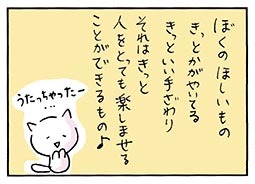 ぼくの ほしいもの
きっとかがやいてる
きっと いい手ざわり
それはきっと
人をとっても楽しませる
ことができるもの♪
うたっちゃったー
…